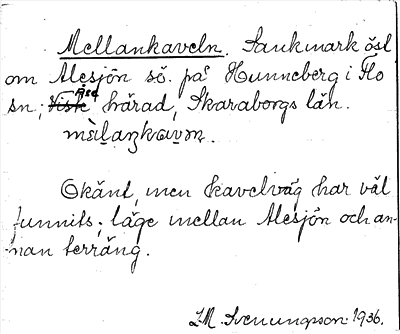 Mellankaveln. Sankmark ösl
om Alesjön sö. på Hunneberg i Flo
sn; Åse härad, Skaraborgs län.
Okänt, men kavelväg har väl
funnits; läge mellan Alesjön och an-
nan terräng.
LM. Svenungsson 1936.